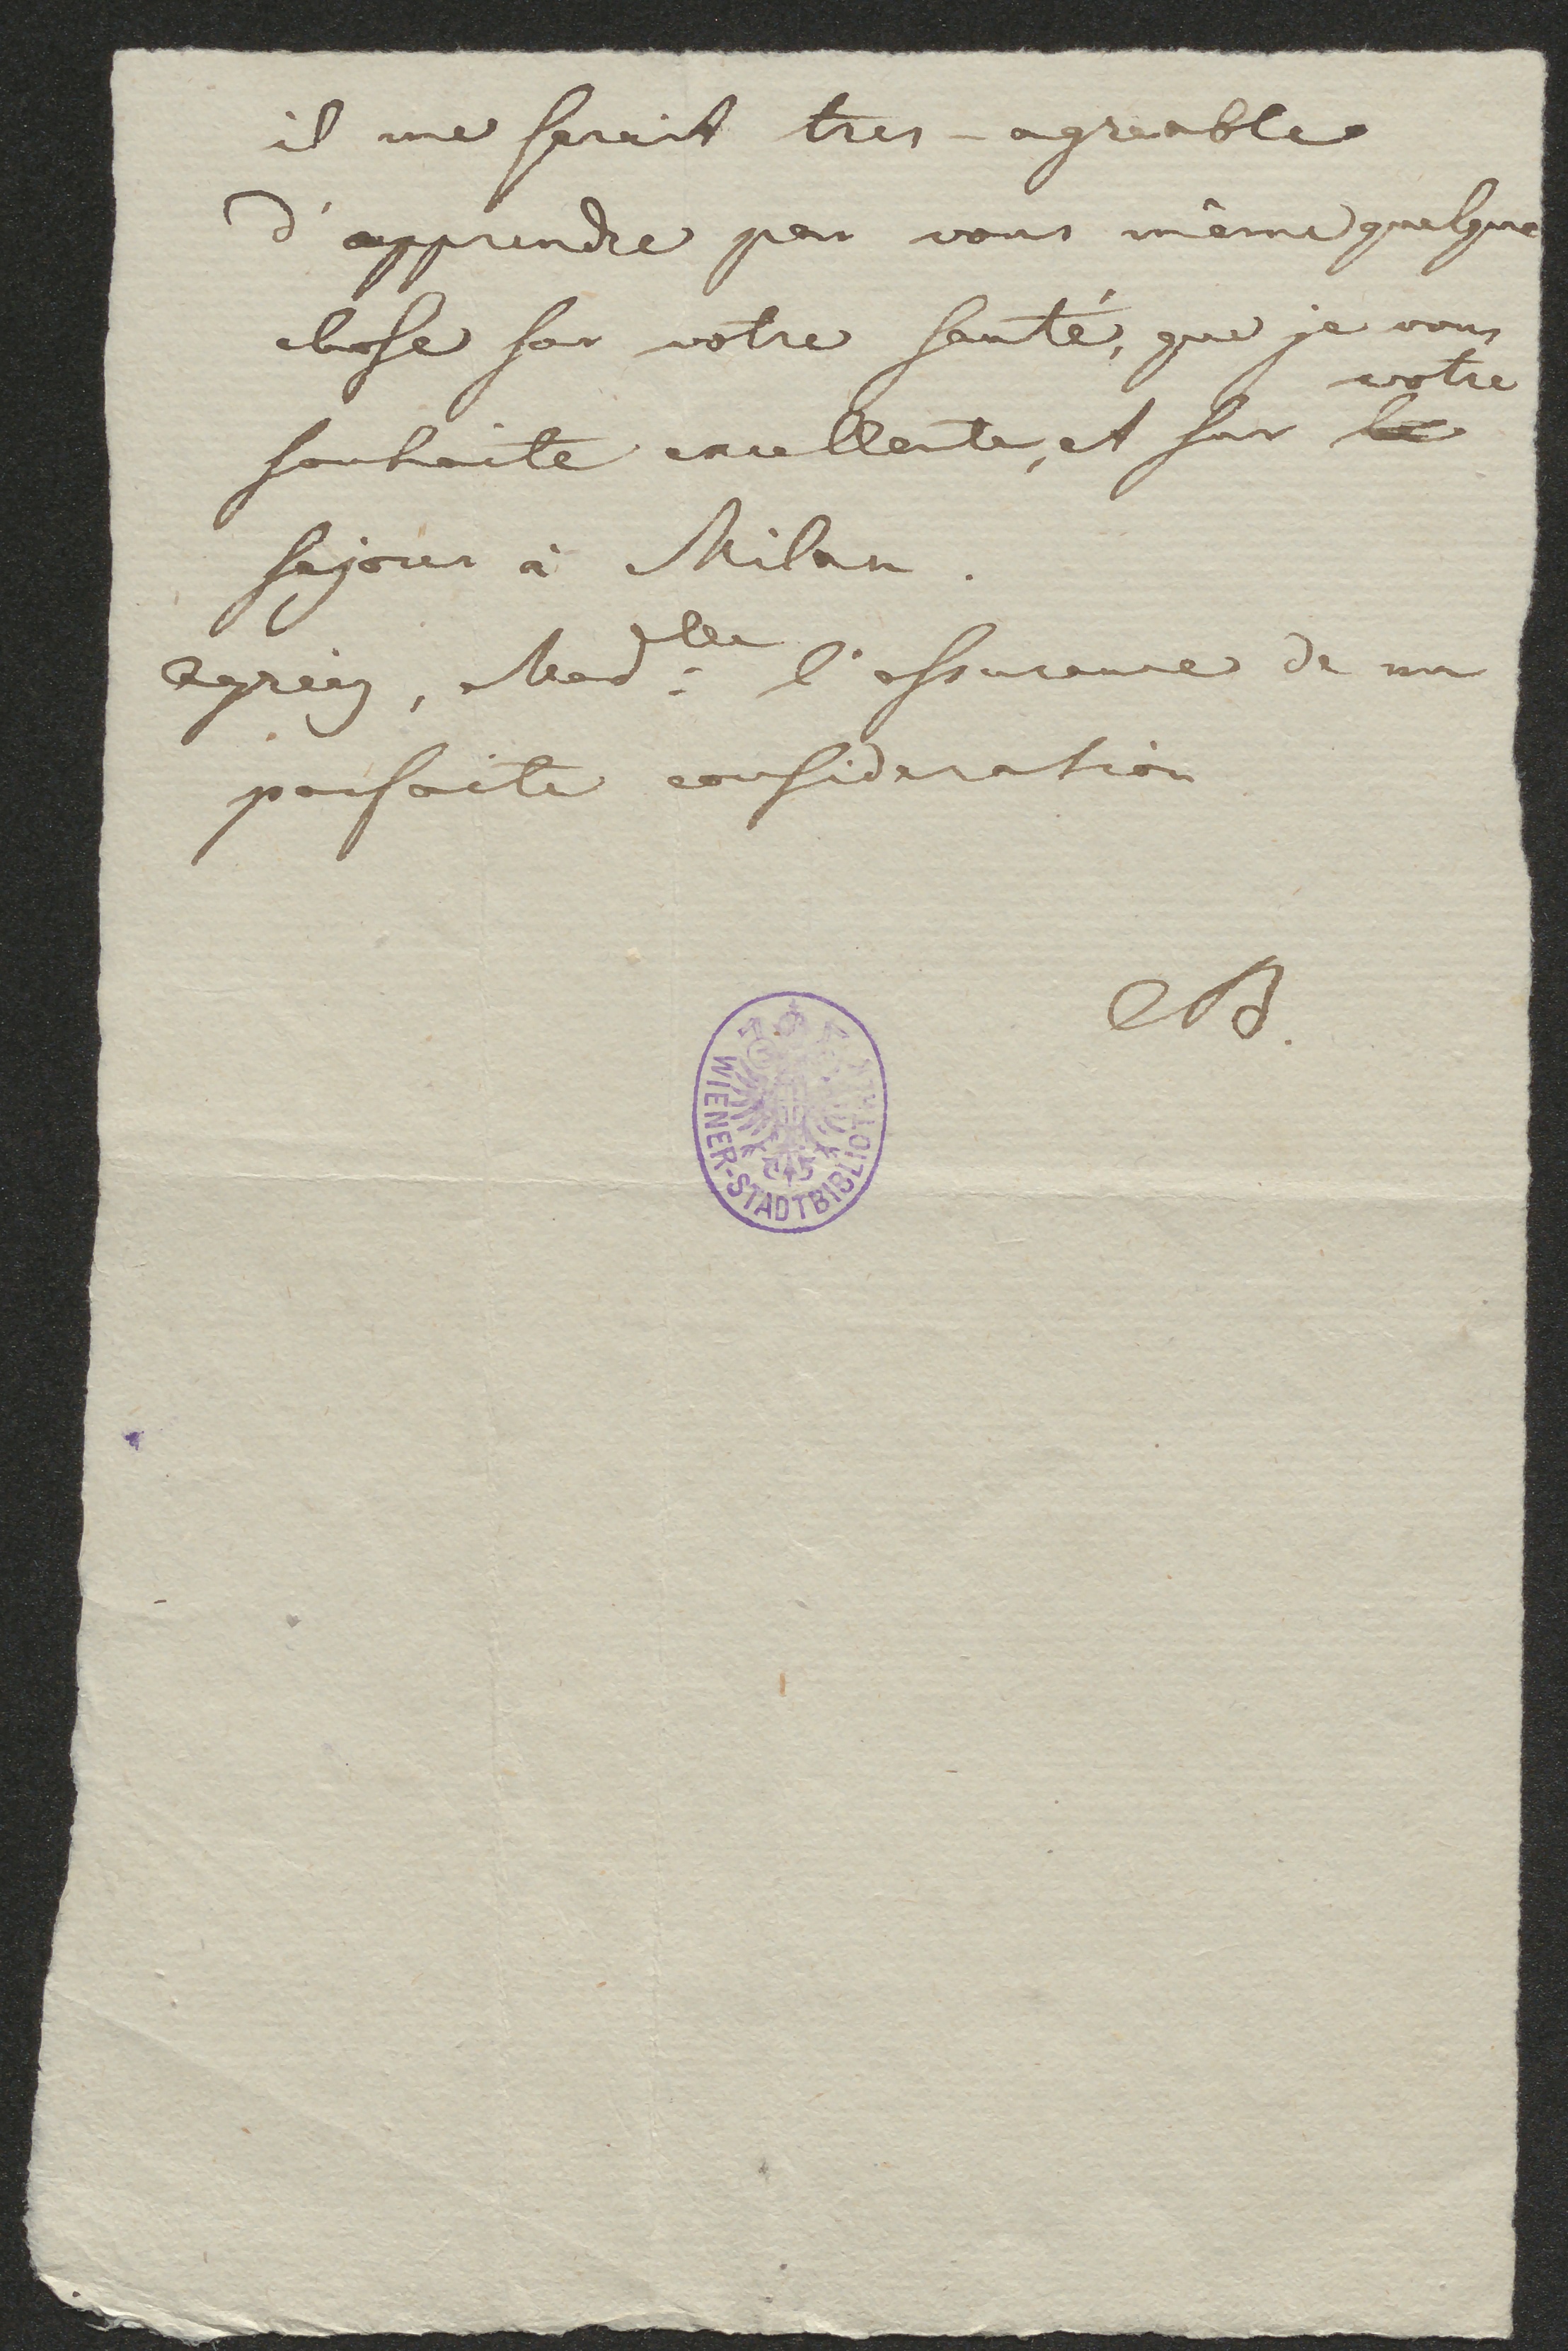 il me serait tres-agreable
d'apprendre par vous même quelque
chose sur votre santé, que je vous
votre
souhaite excellente, et sur le
sejour à Milan.
Agréez, Mad:lle l'assurance de ma
parfaite consideration
B.
WIENER-STADTBIBLIOTHEK